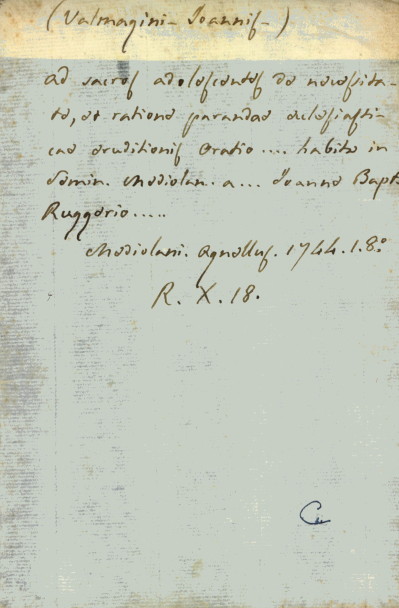 (Valmagini- Joannis-)
Ad sacros adolescentes de necessita-
te, et ratione parandae ecclesiasti-
cae eruditionis Oratio .... habita in
Semin. Mediolan. a ... Joanne Bapt.
Ruggerio .....
Mediolani. Agnellus. 1744. 1. 8º
R. X. 18.